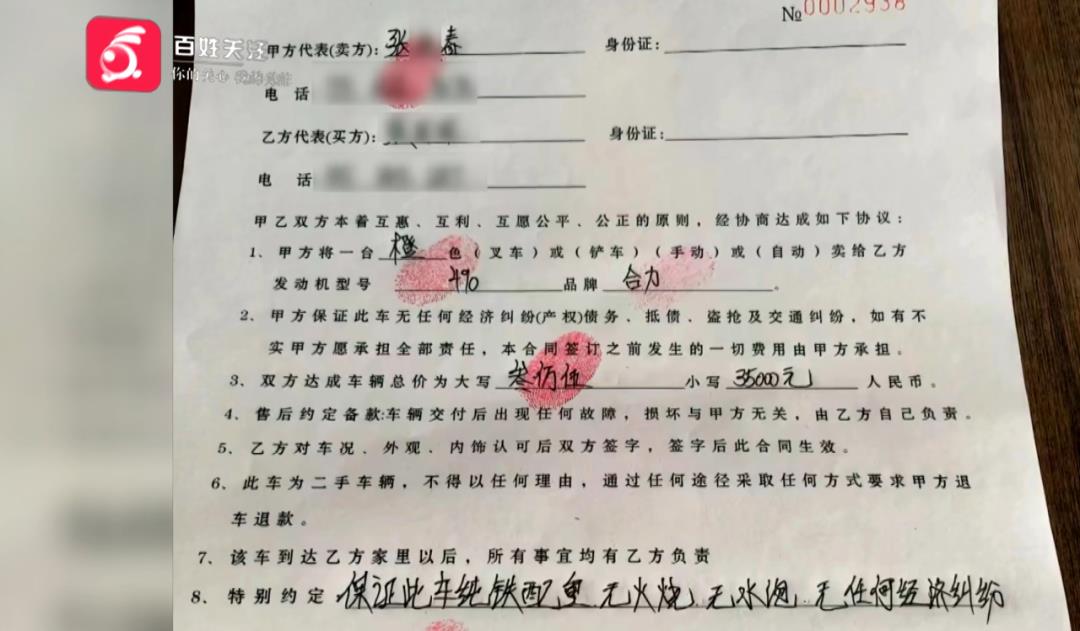 №0002938
百姓关注
你的关心 我的关注
甲方代表(卖方): 张 春 身份证:
电 话
乙方代表(买方): 身份证:
电 话
甲乙双方本着互惠、互利、互愿公平、公正的原则，经协商达成如下协议：
1、甲方将一台 橙 色（叉车）或（铲车）（手动）或（自动）卖给乙方
发动机型号 490 品牌 合力 。
2、甲方保证此车无任何经济纠纷(产权)债务、抵债、盗抢及交通纠纷，如有不
实甲方愿承担全部责任，本合同签订之前发生的一切费用由甲方承担。
3、双方达成车辆总价为大写 叁仟伍 小写 35000元 人民币。
4、售后约定备款:车辆交付后出现任何故障，损坏与甲方无关，由乙方自己负责。
5、乙方对车况、外观、内饰认可后双方签字，签字后此合同生效。
6、此车为二手车辆，不得以任何理由，通过任何途径采取任何方式要求甲方退
车退款。
7、该车到达乙方家里以后，所有事宜均有乙方负责
8、特别约定 保证此车纯铁配重 无火烧 无水泡 无任何经济纠纷